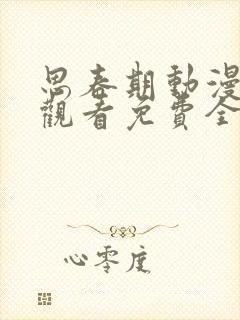 思春期動漫
觀看免費全
心零度